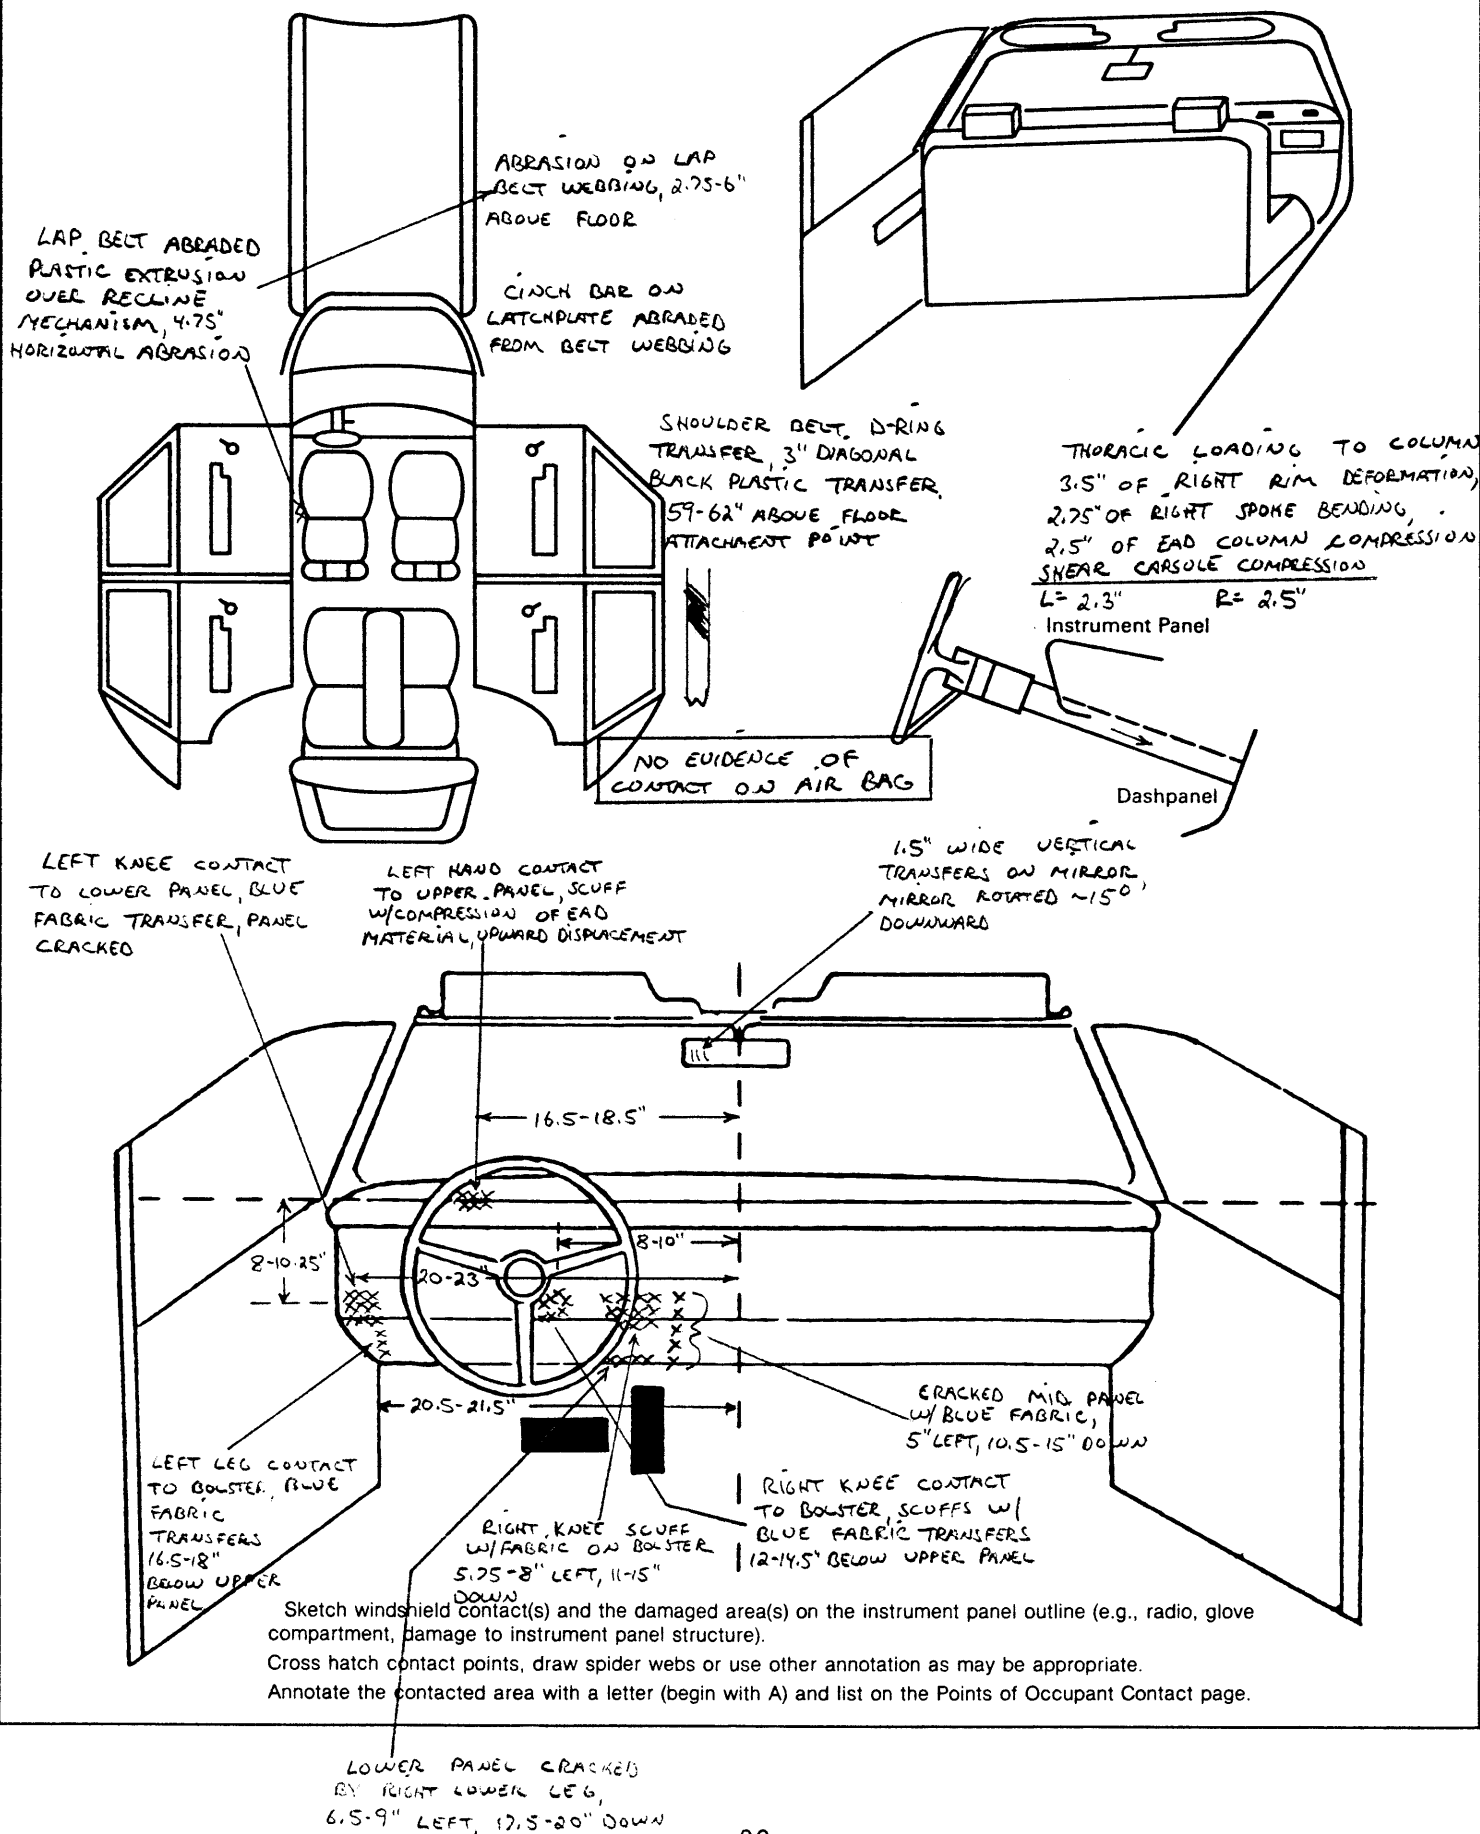 ABRASION ON LAP
BELT WEBBING, 2.75-6"
ABOVE FLOOR
LAP BELT ABRADED
PLASTIC EXTRUSION
OVER RECLINE
MECHANISM, 4.75"
HORIZONTAL ABRASION
CINCH BAR ON
LATCHPLATE ABRADED
FROM BELT WEBBING
SHOULDER BELT D-RING
TRANSFER, 3" DIAGONAL
BLACK PLASTIC TRANSFER
59-62" ABOVE FLOOR
ATTACHMENT POINT
THORACIC LOADING TO COLUMN
3.5" OF RIGHT RIM DEFORMATION,
2.75" OF RIGHT SPOKE BENDING,
2.5" OF EAD COLUMN COMPRESSION
SHEAR CAPSULE COMPRESSION
L= 2.3" R= 2.5"
Instrument Panel
NO EVIDENCE OF
CONTACT ON AIR BAG
Dashpanel
LEFT KNEE CONTACT
TO LOWER PANEL, BLUE
FABRIC TRANSFER, PANEL
CRACKED
LEFT HAND CONTACT
TO UPPER PANEL, SCUFF
W/COMPRESSION OF EAD
MATERIAL, UPWARD DISPLACEMENT
1.5" WIDE VERTICAL
TRANSFERS ON MIRROR,
MIRROR ROTATED ~15°
DOWNWARD
16.5-18.5"
8-10"
8-10.25"
20-23"
20.5-21.5"
CRACKED MID PANEL
W/ BLUE FABRIC,
5" LEFT, 10.5-15" DOWN
LEFT LEG CONTACT
TO BOLSTER, BLUE
FABRIC
TRANSFERS
16.5-18"
BELOW UPPER
PANEL
RIGHT KNEE SCUFF
W/FABRIC ON BOLSTER
5.75-8" LEFT, 11-15"
DOWN
RIGHT KNEE CONTACT
TO BOLSTER, SCUFFS W/
BLUE FABRIC TRANSFERS
12-14.5" BELOW UPPER PANEL
Sketch windshield contact(s) and the damaged area(s) on the instrument panel outline (e.g., radio, glove
compartment, damage to instrument panel structure).
Cross hatch contact points, draw spider webs or use other annotation as may be appropriate.
Annotate the contacted area with a letter (begin with A) and list on the Points of Occupant Contact page.
LOWER PANEL CRACKED
BY RIGHT LOWER LEG,
6.5-9" LEFT, 17.5-20" DOWN